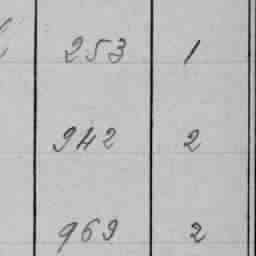 253 1
942 2
969 2